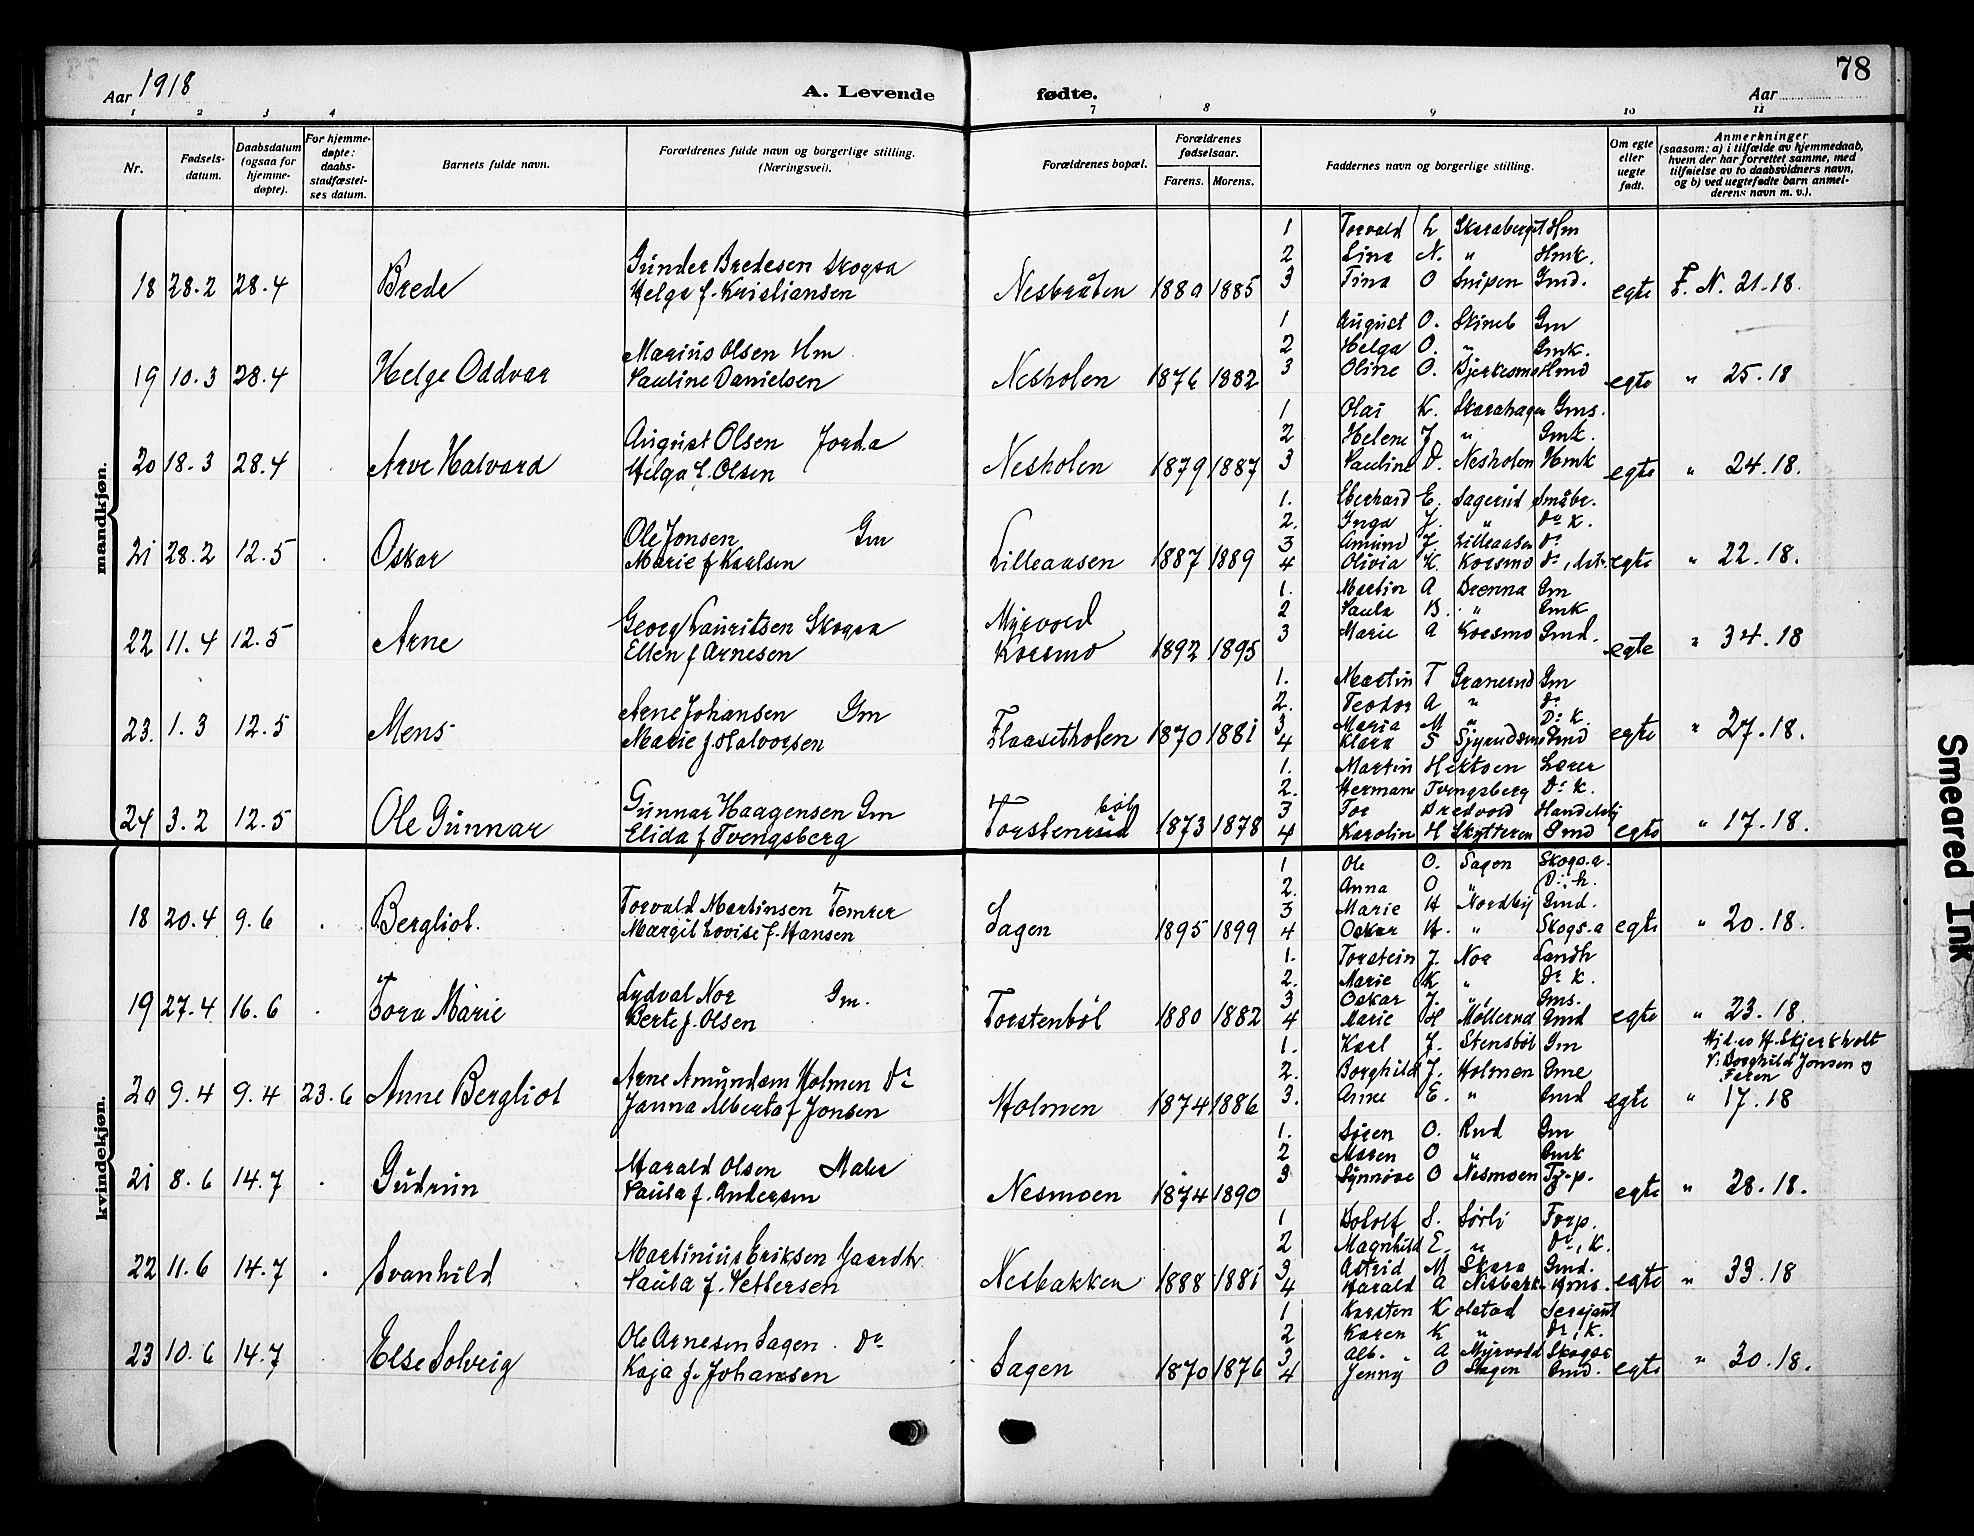 78
Aar 1918
A. Levende
fødte.
Aar
1 2 3 4 7 8 9 10 11
Nr.
Fødsels-datum.
Daabsdatum (ogsaa for hjemme-døpte).
For hjemme-døpte: daabs-stadfæstel-ses datum.
Barnets fulde navn.
Forældrenes fulde navn og borgerlige stilling. (Næringsvei).
Forældrenes bopæl.
Forældrenes fødselsaar.
Farens. Morens.
Faddernes navn og borgerlige stilling.
Om egte eller uegte født.
Anmerkninger (saasom: a) i tilfælde av hjemmedaab, hvem der har forrettet samme, med tilføielse av to daabsvidners navn, og b) ved uegtefødte barn anmel-derens navn m. v.).
mandkjøn.
1 Torvald L Skaraberget Hm
2 Lina N. " Hmk.
3 Tina O Snipen Gmd.
18 28.2 28.4 Brede
Gunder Bredesen Skogsa
Helga f. Kristiansen
Nesbråten 1880 1885 egte F. N. 21-18.
1 August O. Skineb Gm
2 Helga O. " Gmk.
3 Oline O. Bjerkesmo Hmd
19 10.3 28.4 Helge Oddvar
Marius Olsen Hm
Pauline Danielsen
Nesholen 1876 1882 egte " 25.18
1 Olai K. Skarahagen Gms.
2 Helene J " Gmk.
3 Pauline D. Nesholen Hmk
20 18.3 28.4 Arve Halvard
August Olsen Jorda
Helga f. Olsen
Nesholen 1879 1887 egte " 24.18.
1. Eberhard E. Sagerud Småbr.
2. Inga J. " Do k.
3 Amund J Lilleaasen do
4 Olivia K. Korsmo do, dat.
21 28.2 12.5 Oskar
Ole Jonsen Gm
Marie f Karlsen
Lilleaasen 1887 1889 egte " 22.18.
1. Martin A Drenna Gm
2 Paula B. " Gmk
3 Marie A Korsmo Gmd.
22 11.4 12.5 Arne
Georg Lauritsen Skogsa
Ellen f Arnesen
Myrvold
Korsmo 1892 1895 egte " 34.18
1. Martin T Granerud Gm
2. Teodor A " do
3. Maria M " Do k.
4 Klara S Gjerudsmo Gmd
23. 1.3 12.5 Mens
Arne Johansen Gm
Marie f. Halvorsen
Flaasetholen 1870 1881 egte " 27.18.
1. Martin Hektoen Lærer
2. Herman Tvengsberg Do k.
3 Tor Bredvold Handelsbj
4 Karolin H Skytteren Gmd
24 3.2 12.5 Ole Gunnar
Gunnar Haagensen Gm
Elida f Tvengsberg
Torstenrud
böl 1873 1878 egte " 17.18.
kvindekjøn.
1 Ole O. Sagen Skogs.a.
2. Anna O " Do, h.
3 Marie H Nordby Gmd.
4 Oskar H. " Skogs.a
18 20.4 9.6 Bergliot.
Torvald Martinsen Tømrer
Margit Lovise f. Hansen
Sagen 1895 1899 egte " 20.18.
1. Torstein J. Nor Landh
2. Marie K " Do k.
3 Oskar J. " Gms.
4 Marie H Möllerud Gmd
19 27.4 16.6 Tora Marie
Lydval Nor Gm.
Berte f. Olsen
Torstenböl 1880 1882 egte " 23.18.
1. Karl J. Stensböl Gm
2. Borghild J. Holmen Gme
3. Anne E. " Gmd
Hjd. v. H. Skjerkholt
V: Borghild Jonsen og
Faren
20 9.4 9.4 23.6 Anne Bergliot
Arne Amundsen Holmen Do
Janna Alberta f Jonsen
Holmen 1874 1886 egte " 17.18
1. Søren O. Rud Gm
2 Maren O " Gmk
3 Synnöve O Nesmoen Tj.p.
21 8.6 14.7 Gudrun
Harald Olsen Maler
Paula f. Andersen
Nesmoen 1874 1890 egte " 28.18.
1 Rololf S. Sörli Forp.
2 Magnhild E. " Do, K.
3 Astrid M Skara Gmd.
4 Harald A Nesbakk. Gms.
22 11.6 14.7 Svanhild
Martinius Eriksen Gaardbr
Paula f. Pettersen
Nesbakken 1888 1881 egte " 33.18
1 Karsten Kolstad Sersjant
2 Karen K " Do, K.
3 Alb. A Myrvold Skogsa
4 Jenny O Sagen Gmd.
23 10.6 14.7 Else Solveig
Ole Arnesen Sagen do
Kaja f. Johansen
Sagen 1870 1876 egte " 30.18.
Smeared Ink